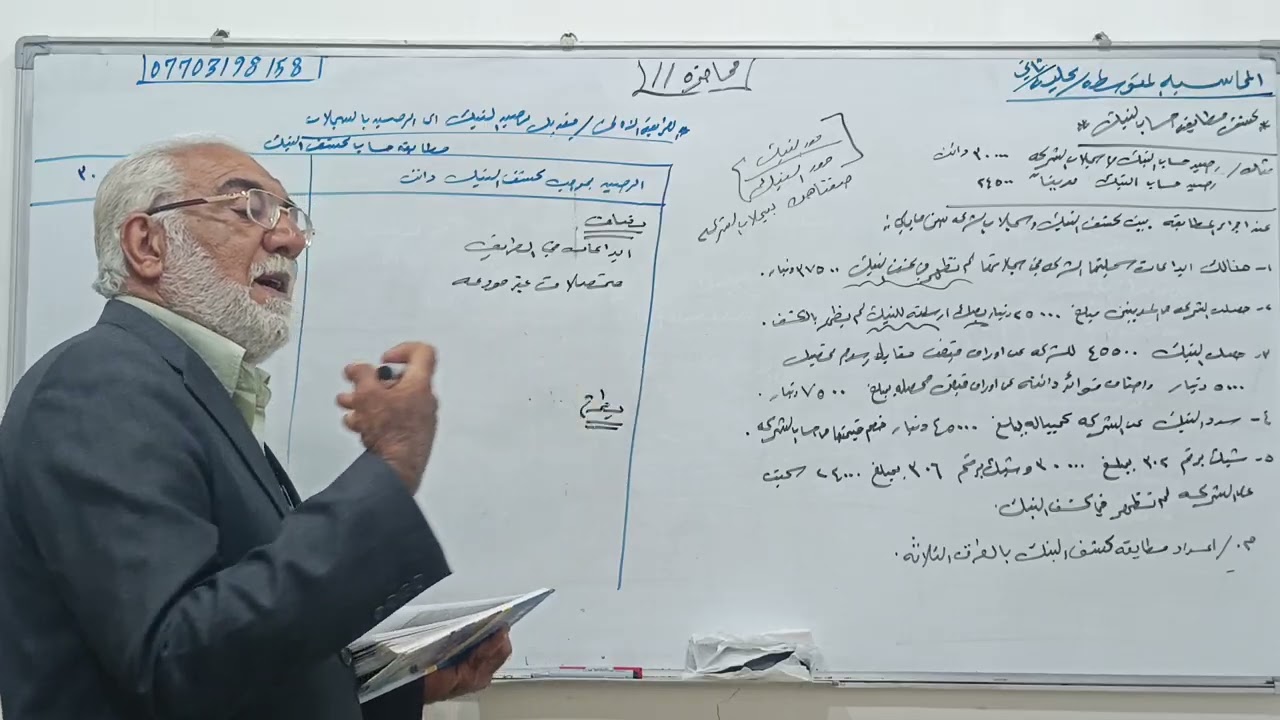 المحاسبه المتوسطه / تحليلي / ثاني
محاضره 11
07703198158
* كشف مطابقة حساب البنك *
مثال / رصيد حساب البنك لا سجلات الشركه ٣٠٠٠٠ دائن
رصيد حساب البنك مدينا ٢٤٥٠٠
عند اجراء المطابقه بين كشف البنك وسجلات الشركه تبين مايلي :
١- هنالك ايداعات سجلتها الشركه في سجلاتها لم تظهر في كشف البنك ٣٧٥٠٠ دينار .
٢- حصلت الشركه من المدينين مبلغ ٢٥٠٠٠ دينار بصك ارسلته للبنك لم يظهر بالكشف .
٣- حصل البنك ٤٥٥٠٠ للشركه عن اوراق قبض مقابل رسوم تحصيل
٥٠٠٠ دينار واضاف فوائد دائنه عن اوراق قبض محصله بمبلغ ٧٥٠٠ دينار .
٤- سدد البنك عن الشركه كمبياله بمبلغ ٤٥٠٠٠ دينار خصم قيمتها من حساب الشركه .
٥- شيك برقم ٣٠٢ بمبلغ ٣٠٠٠٠ وشيك برقم ٣٠٦ بمبلغ ٢٤٠٠٠ سحبت
على الشركه لم تظهر في كشف البنك .
م. / اعداد مطابقة كشف البنك بالطرق الثلاثه .
دور البنك
دور العميل
بسجلات الشركه
* الطريقة الاولى / تعديل رصيد البنك الى الرصيد بالسجلات
مطابقة حساب كشف البنك
الرصيد بموجب كشف البنك دائن
٣٠
يضاف
ايداعات في الطريق
متحصلات غير مودعه
يطرح